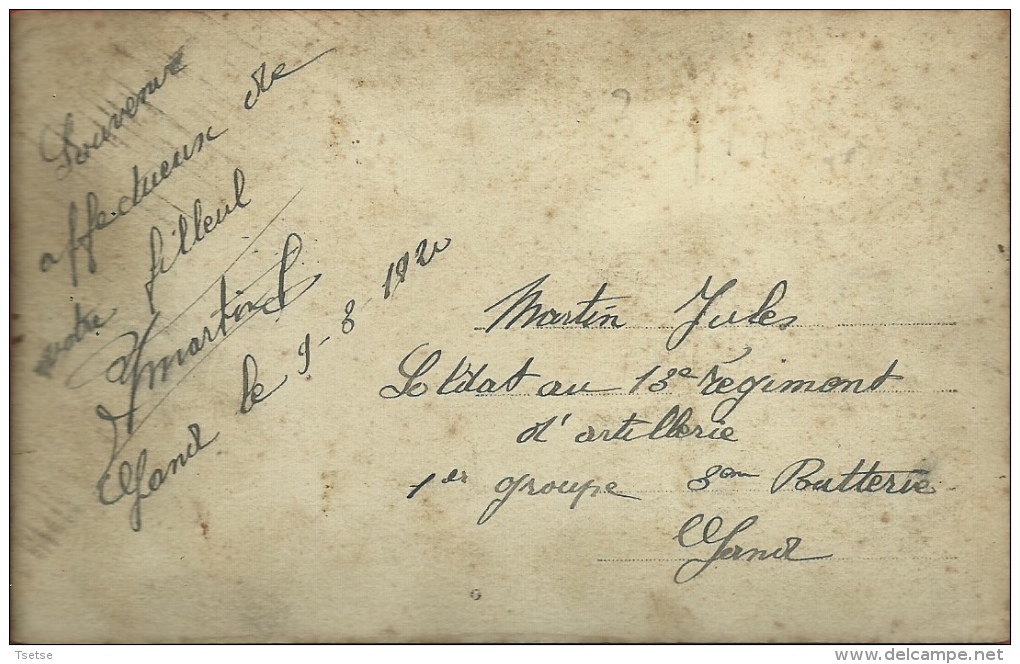 Souvenir
affectueux de
votre filleul
JMartin
Gand le 9-8 1920
Martin Jules
Soldat au 13e régiment
d'artillerie
1er groupe 3em Batterie
Gand
Tsetse
www.delcampe.net